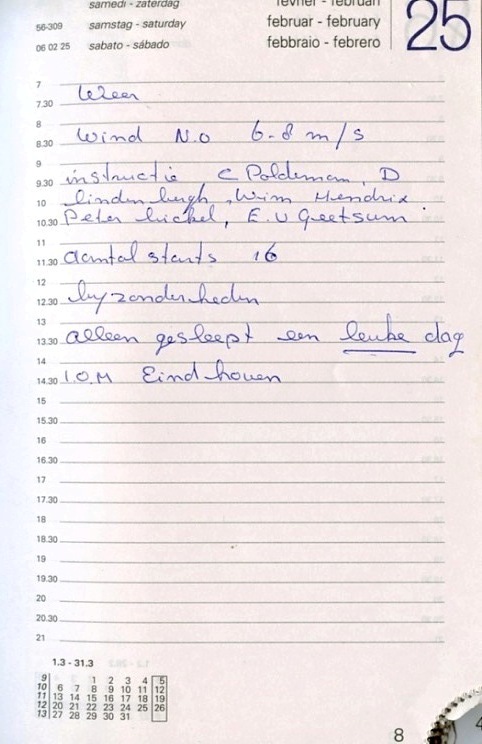 samedi - zaterdag
56-309 samstag - saturday
06 02 25 sabato - sábado
février - februari
februar - february
febbraio - febrero
25
7
7.30 Weer
8
8.30 Wind N.O 6-8 m/s
9
9.30 instructie C Poldeman, D
10 lindenburgh, Wim Hendrix
10.30 Peter Nickel, E. v Geetsum
11
11.30 aantal starts 16
12
12.30 byzonderheden
13
13.30 alleen gesleept een leuke dag
14
14.30 I.O.M Eindhoven
15
15.30
16
16.30
17
17.30
18
18.30
19
19.30
20
20.30
21
1.3 - 31.3
9 1 2 3 4 5
10 6 7 8 9 10 11 12
11 13 14 15 16 17 18 19
12 20 21 22 23 24 25 26
13 27 28 29 30 31
8
4